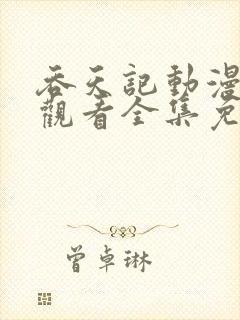 吞天記動漫
觀看全集免
曾卓琳